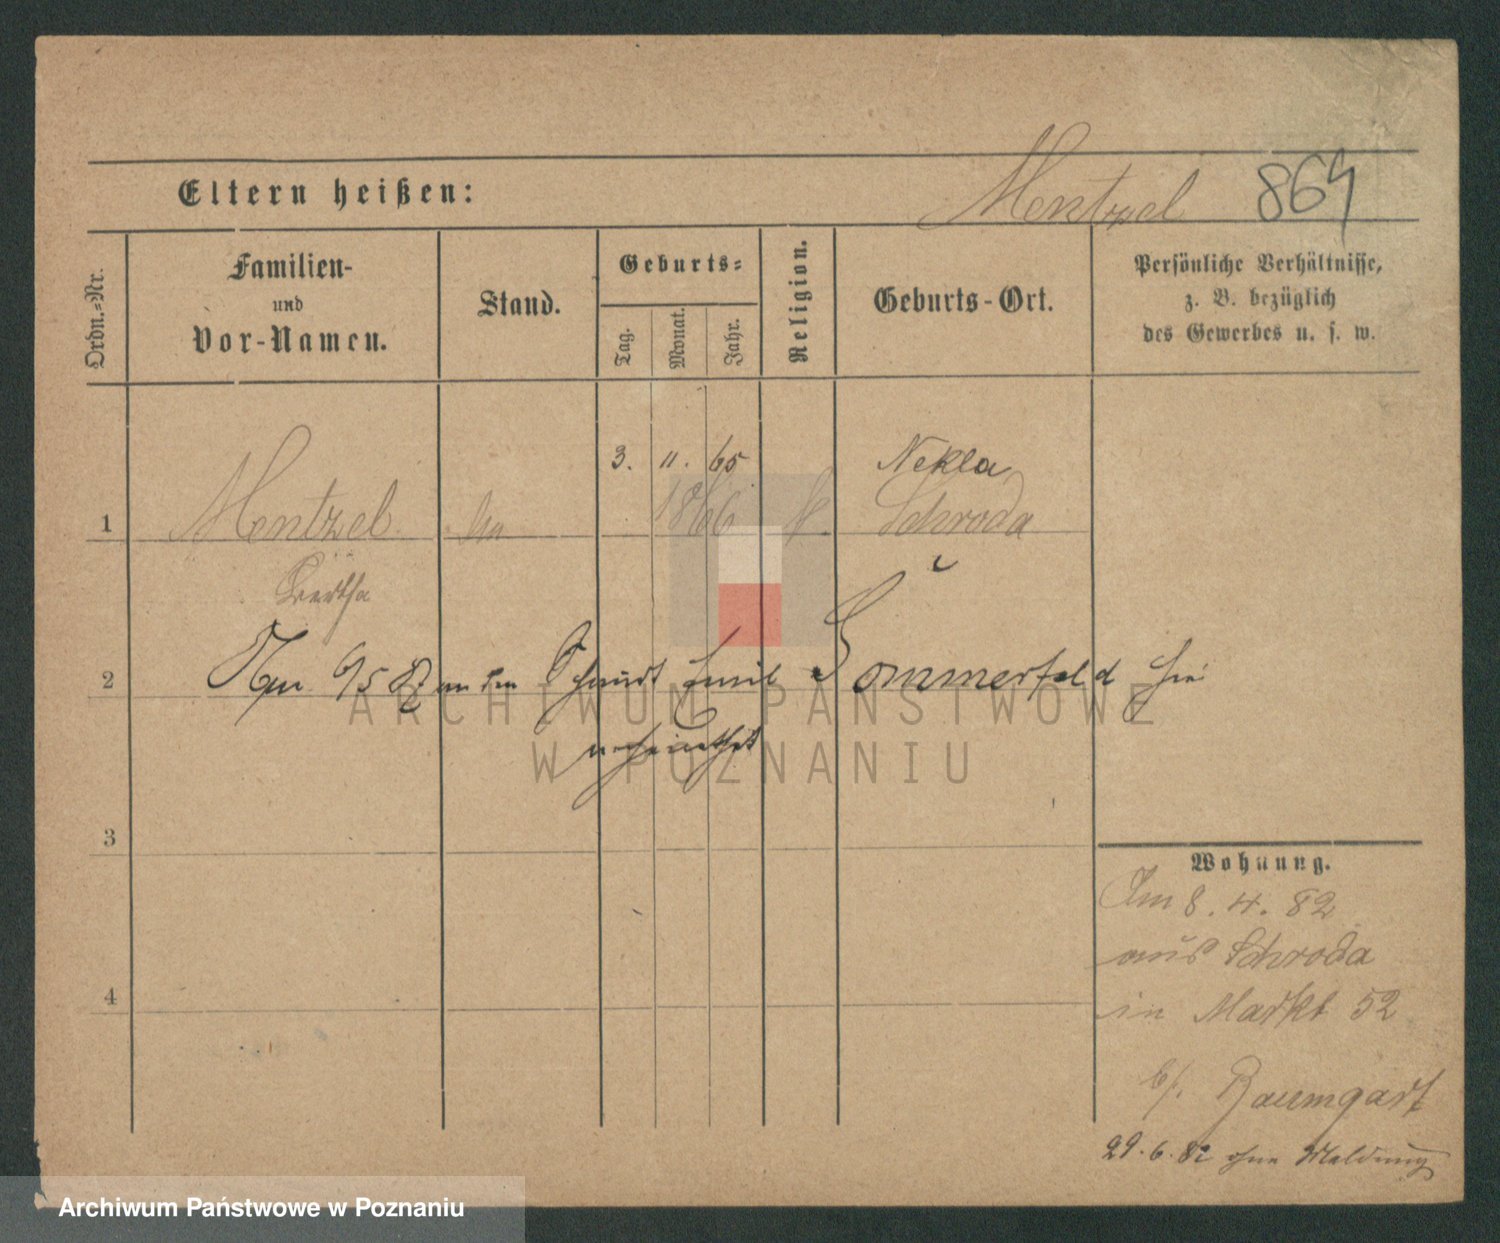 Eltern heißen:
Mentzel 864
Ordn.-Nr.
Familien-
und
Vor-Namen.
Stand.
Geburts-
Tag.
Monat.
Jahr.
Religion.
Geburts-Ort.
Persönliche Verhältnisse,
z. B. bezüglich
des Gewerbes u. s. w.
3. 11. 65 Nekla
1 Mentzel 1866 Schroda
Bertha
2 Emil Sommerfeld
ARCHIWUM PAŃSTWOWE
verheirathet
W POZNANIU
3
4
Wohnung.
Am 8. 4. 82
aus Schroda
in Markt 52
b/. Baumgart
29. 6. 82 ohne Meldung
Archiwum Państwowe w Poznaniu